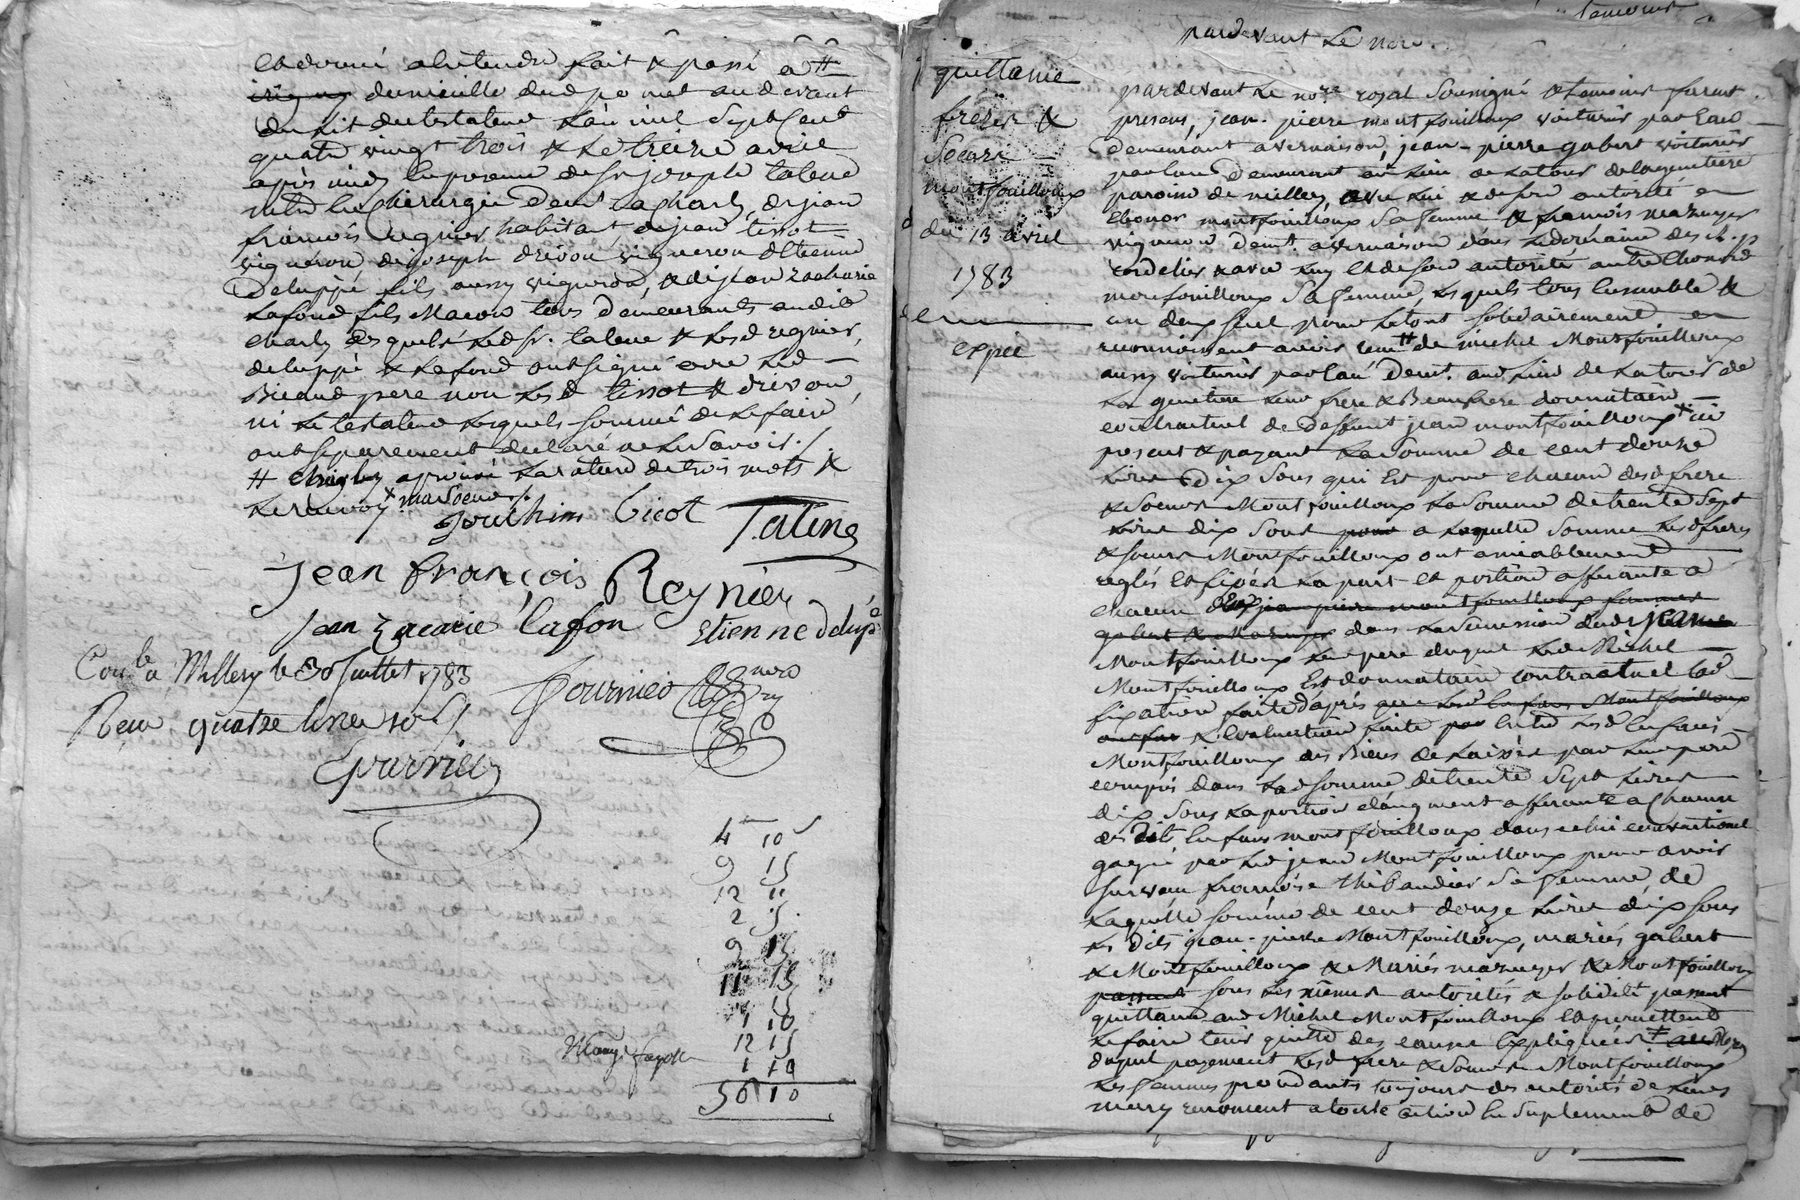 et donné a entendre fait & passé a #
dumeille dud ponet au devant
du lit du testateur l'an mil sept cent
quatre vingt trois & le treize avril
après midy en presence de sr joseph talene
me en chirurgie demt a Charly, de jean
francois regnier habitant, de jean tissot
vigneron de joseph drivon vigneron d'Etienne
deluppé fils aussy vigneron, & de jean zacharie
Lafond fils Macon tous demeurants audit
Charly desquels led sr. talene & lesd regnier,
deluppé & Lafond ont signé avec led
Bicaud pere non lesd tissot & drivon,
ni le testateur lesquels sommé de le faire
ont separement declaré ne le savoir ./.
# Charly aprouvé la rature de trois mots &
le renvoy x ma soeur ./.
Joachim Bicot Talene
Jean françois Reynier
Jean Zacarie lafon Etienne delupé
Conlé a Millery le 30 Juillet 1783
Reçu quatre livres 10 s
fournier
nore
Fournier
4 10
9 15
12 11
2 5
9 15
11 15
15
1 10
12 15
1 10
50 10
pardevant le nore
temoins
quittance
freres &
Soeurs
montfouilloux
du 13 avril
1783
expée
pardevant le nore. royal soussigné & temoins furent
presens, jean-pierre montfouilloux voiturier par eau
demeurant a vernaison, jean-pierre gabert voiturier
par eau demeurant au lieu de la tour de la genetiere
paroisse de millery, avec lui & de son autorité
Eleonor montfouilloux sa femme & francois mazuyer
vigneron demt. a vernaison dans le domaine des
cordelier & avec luy et de son autorité autre Eleonord
monfouilloux sa femme, lesquels tous ensemble &
un deux seul pour le tout solidairement
reconnoissent avoir recu # de michel Montfouilloux
aussy voiturier par eau demt. aud lieu de la tour de
la genetiere leur frere & Beaufrere donnataire
contractuel de deffunt jean montfouilloux x ici
present & payant la somme de cent douze
livres dix sous qui est pour chacun desd frere
& soeurs Montfouilloux la somme de trente sept
livres dix sous pour a laquelle somme lesd freres
& soeurs Montfouilloux ont amiablement
reglés et fixées la part et portion afferante a
chacun d'eux jean pierre montfouilloux femmes
gabert & Mazuyer dans la succession dud jean
Montfouilloux leur pere duquel led Michel
Montfouilloux est donnataire contractuel lad
fixation faite d'après que lesd enfans Montfouilloux
& Evaluation faite par entre lesd enfans
Montfouilloux des Biens delaissés par leur pere
compris dans lad somme de trente sept livres
dix sous la portion d'augment afferante a Chacun
des dits enfans montfouilloux dans celui conventionel
gagné par led jean Montfouilloux pour avoir
survecu françoise thibaudier sa femme de
laquelle somme de cent douze livres dix sous
les dits jean-pierre Montfouilloux, mariés gabert
& Montfouilloux & Mariés mazuyer & Montfouilloux
passent sous les mêmes autorités & solidité passent
quittance aud Michel Montfouilloux et promettent
le faire tenir quitte des causes Expliquées
duquel payement lesd frere & soeurs Montfouilloux
les femmes procedants toujours des autorités de leurs
marys renoncent a toute action en suplement de